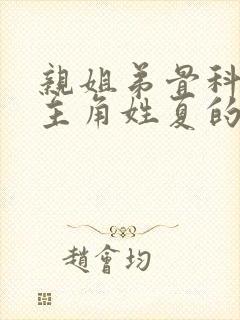 親姐弟骨科
主角姓夏的
趙會均